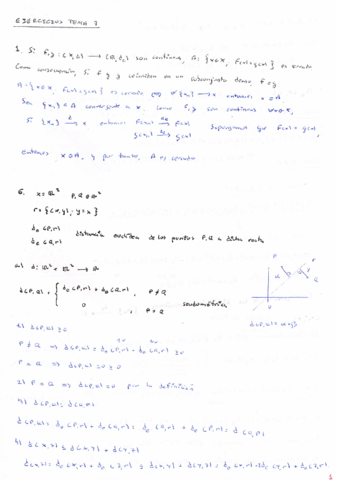 EJERCICIOS TEMA 7
1. Si f,g : (X,d) → (Y,d') son continuas, A = {x∈X, f(x)=g(x)} es cerrado
Como consecuencia, si f y g coinciden en un subconjunto denso f=g
A = {x∈X, f(x)=g(x)} es cerrado {xn} → x entonces x∈A
{xn} ⊂ A convergente a x. Como f,g son continuas
Si {xn} → x entonces f(xn) → f(x) Supongamos que f(x)=g(x),
g(xn) → g(x)
entonces x∈A, y por tanto, A es cerrado
6. X=ℝ² P,Q∈ℝ²
r = {(x,y), y=x}
de(P,r)
de(Q,r) distancia euclídea de los puntos P,Q a dicha recta
a) d: ℝ² × ℝ² → ℝ
d(P,Q) = { de(P,r) + de(Q,r), P≠Q
0 , P=Q
1) d(P,Q) ≥ 0
P≠Q ⇒ d(P,Q) = de(P,r) + de(Q,r) ≥ 0
P=Q ⇒ d(P,Q) = 0 ≥ 0
2) P=Q ⇒ d(P,Q)=0 por la definición
3) d(P,Q) = d(Q,P)
d(P,Q) = de(P,r) + de(Q,r) = de(Q,r) + de(P,r) = d(Q,P)
4) d(x,z) ≤ d(x,y) + d(y,z)
d(x,z) = de(x,r) + de(z,r) ≤ d(x,y) + d(y,z) = de(x,r) + 2de(y,r) + de(z,r)